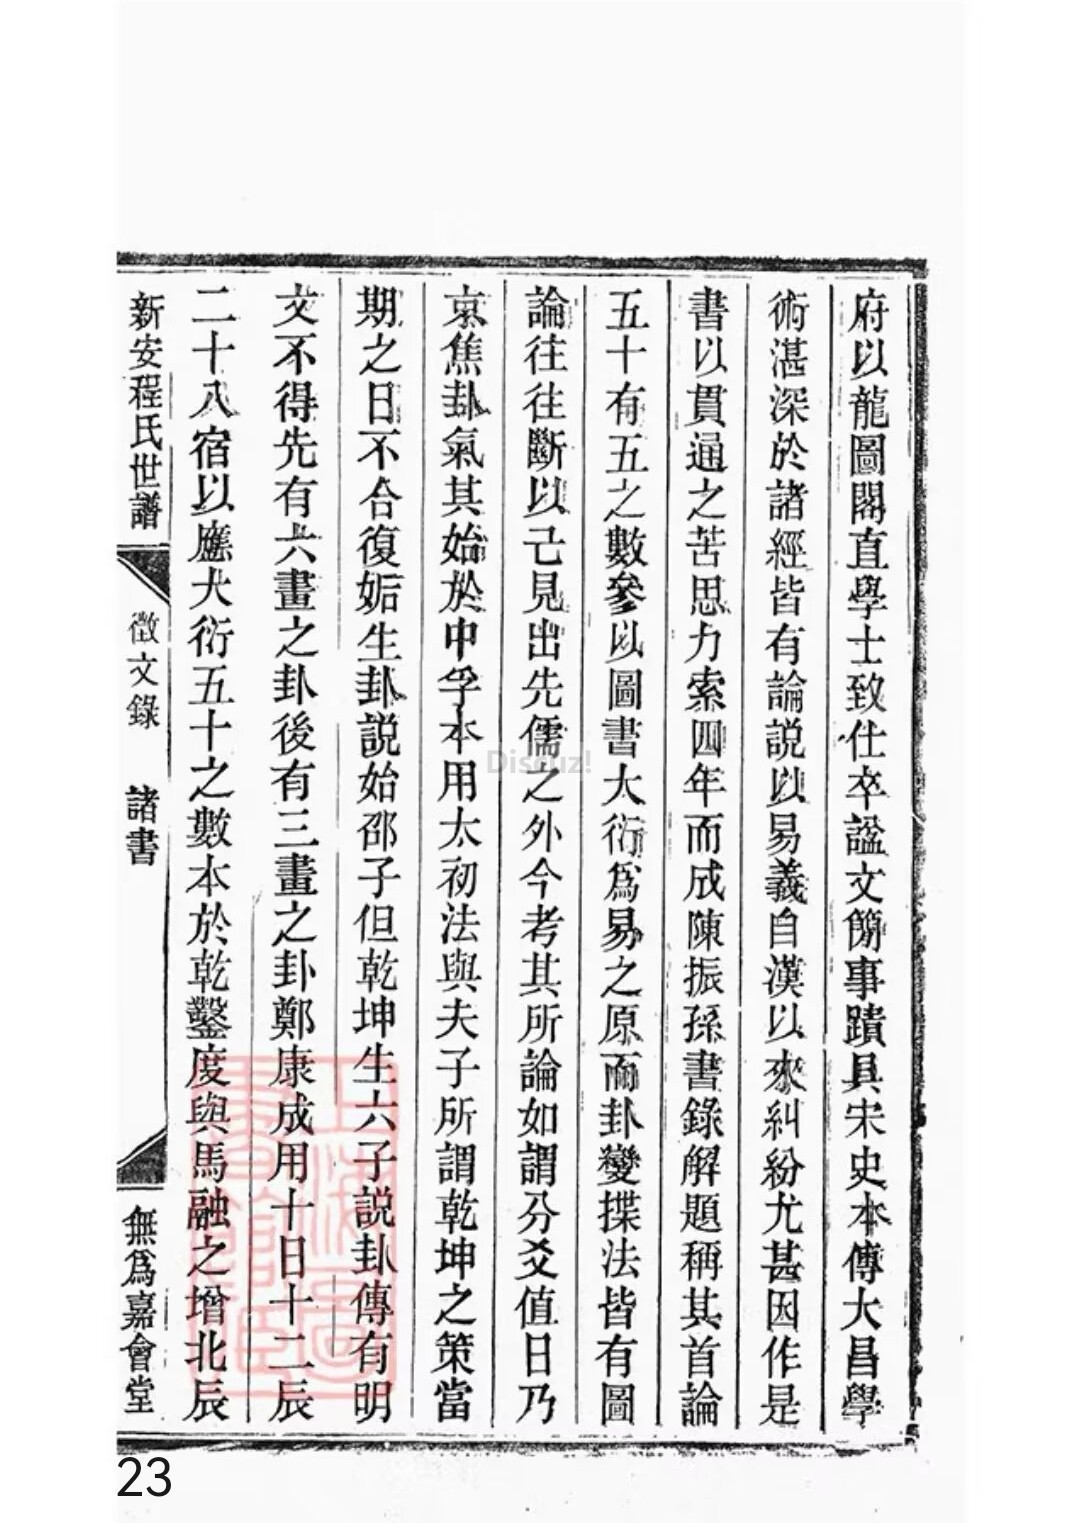 府以龍圖閣直學士致仕卒諡文簡事蹟具宋史本傳大昌學
術湛深於諸經皆有論說以易義自漢以來糾紛尤甚因作是
書以貫通之苦思力索四年而成陳振孫書錄解題稱其首論
五十有五之數參以圖書大衍爲易之原而卦變揲法皆有圖
論往往斷以己見出先儒之外今考其所論如謂分爻值日乃
京焦卦氣其始於中孚本用太初法與夫子所謂乾坤之策當
期之日不合復姤生卦說始邵子但乾坤生六子說卦傳有明
文不得先有六畫之卦後有三畫之卦鄭康成用十日十二辰
二十八宿以應大衍五十之數本於乾鑿度與馬融之增北辰
新安程氏世譜
徵文錄
諸書
無爲嘉會堂
Discuz!
23